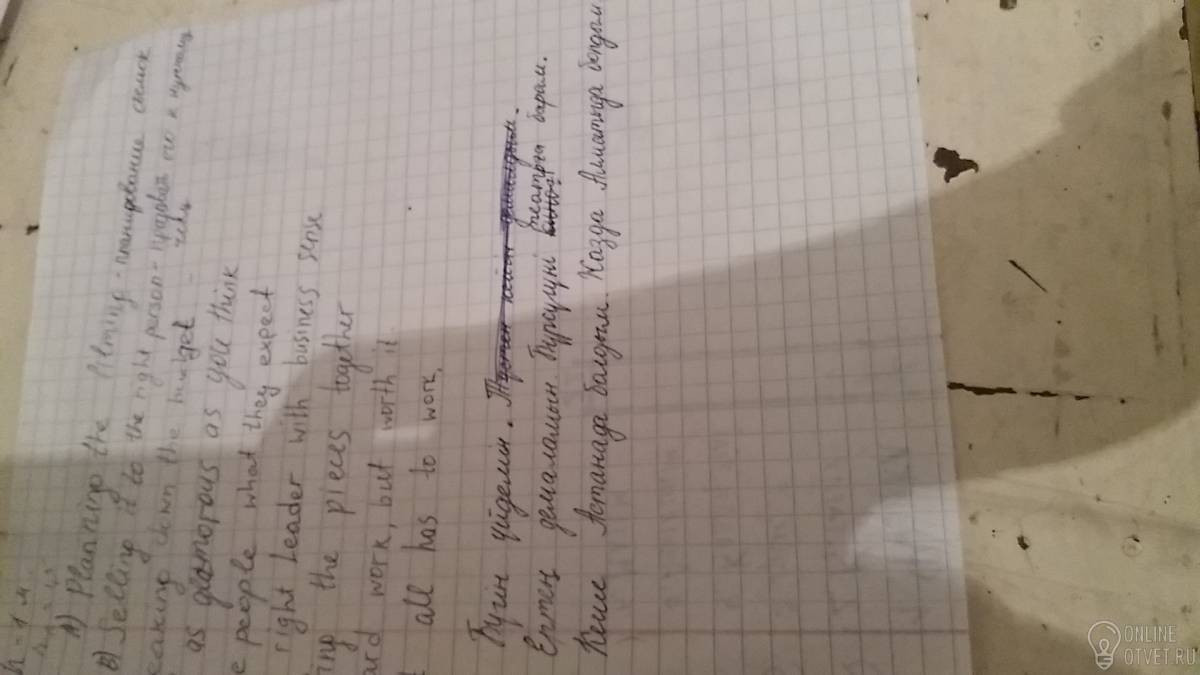 h = 1 м
A) Planning the filming - планирование съемок
B) Selling it to the right person - продавай его к нужному
eaking down the budget - челу
as glamorous as you think
e people what they expect
right leader with business sense
ing the pieces together
ard work, but worth it.
t all has to work.
Бүгін үйдемін.
Ертең демаламын. Бүрсүгүні театрға барам.
Кеше Астанада болдым. Жазда Алматыда болдым
ONLINE
OTVET.RU